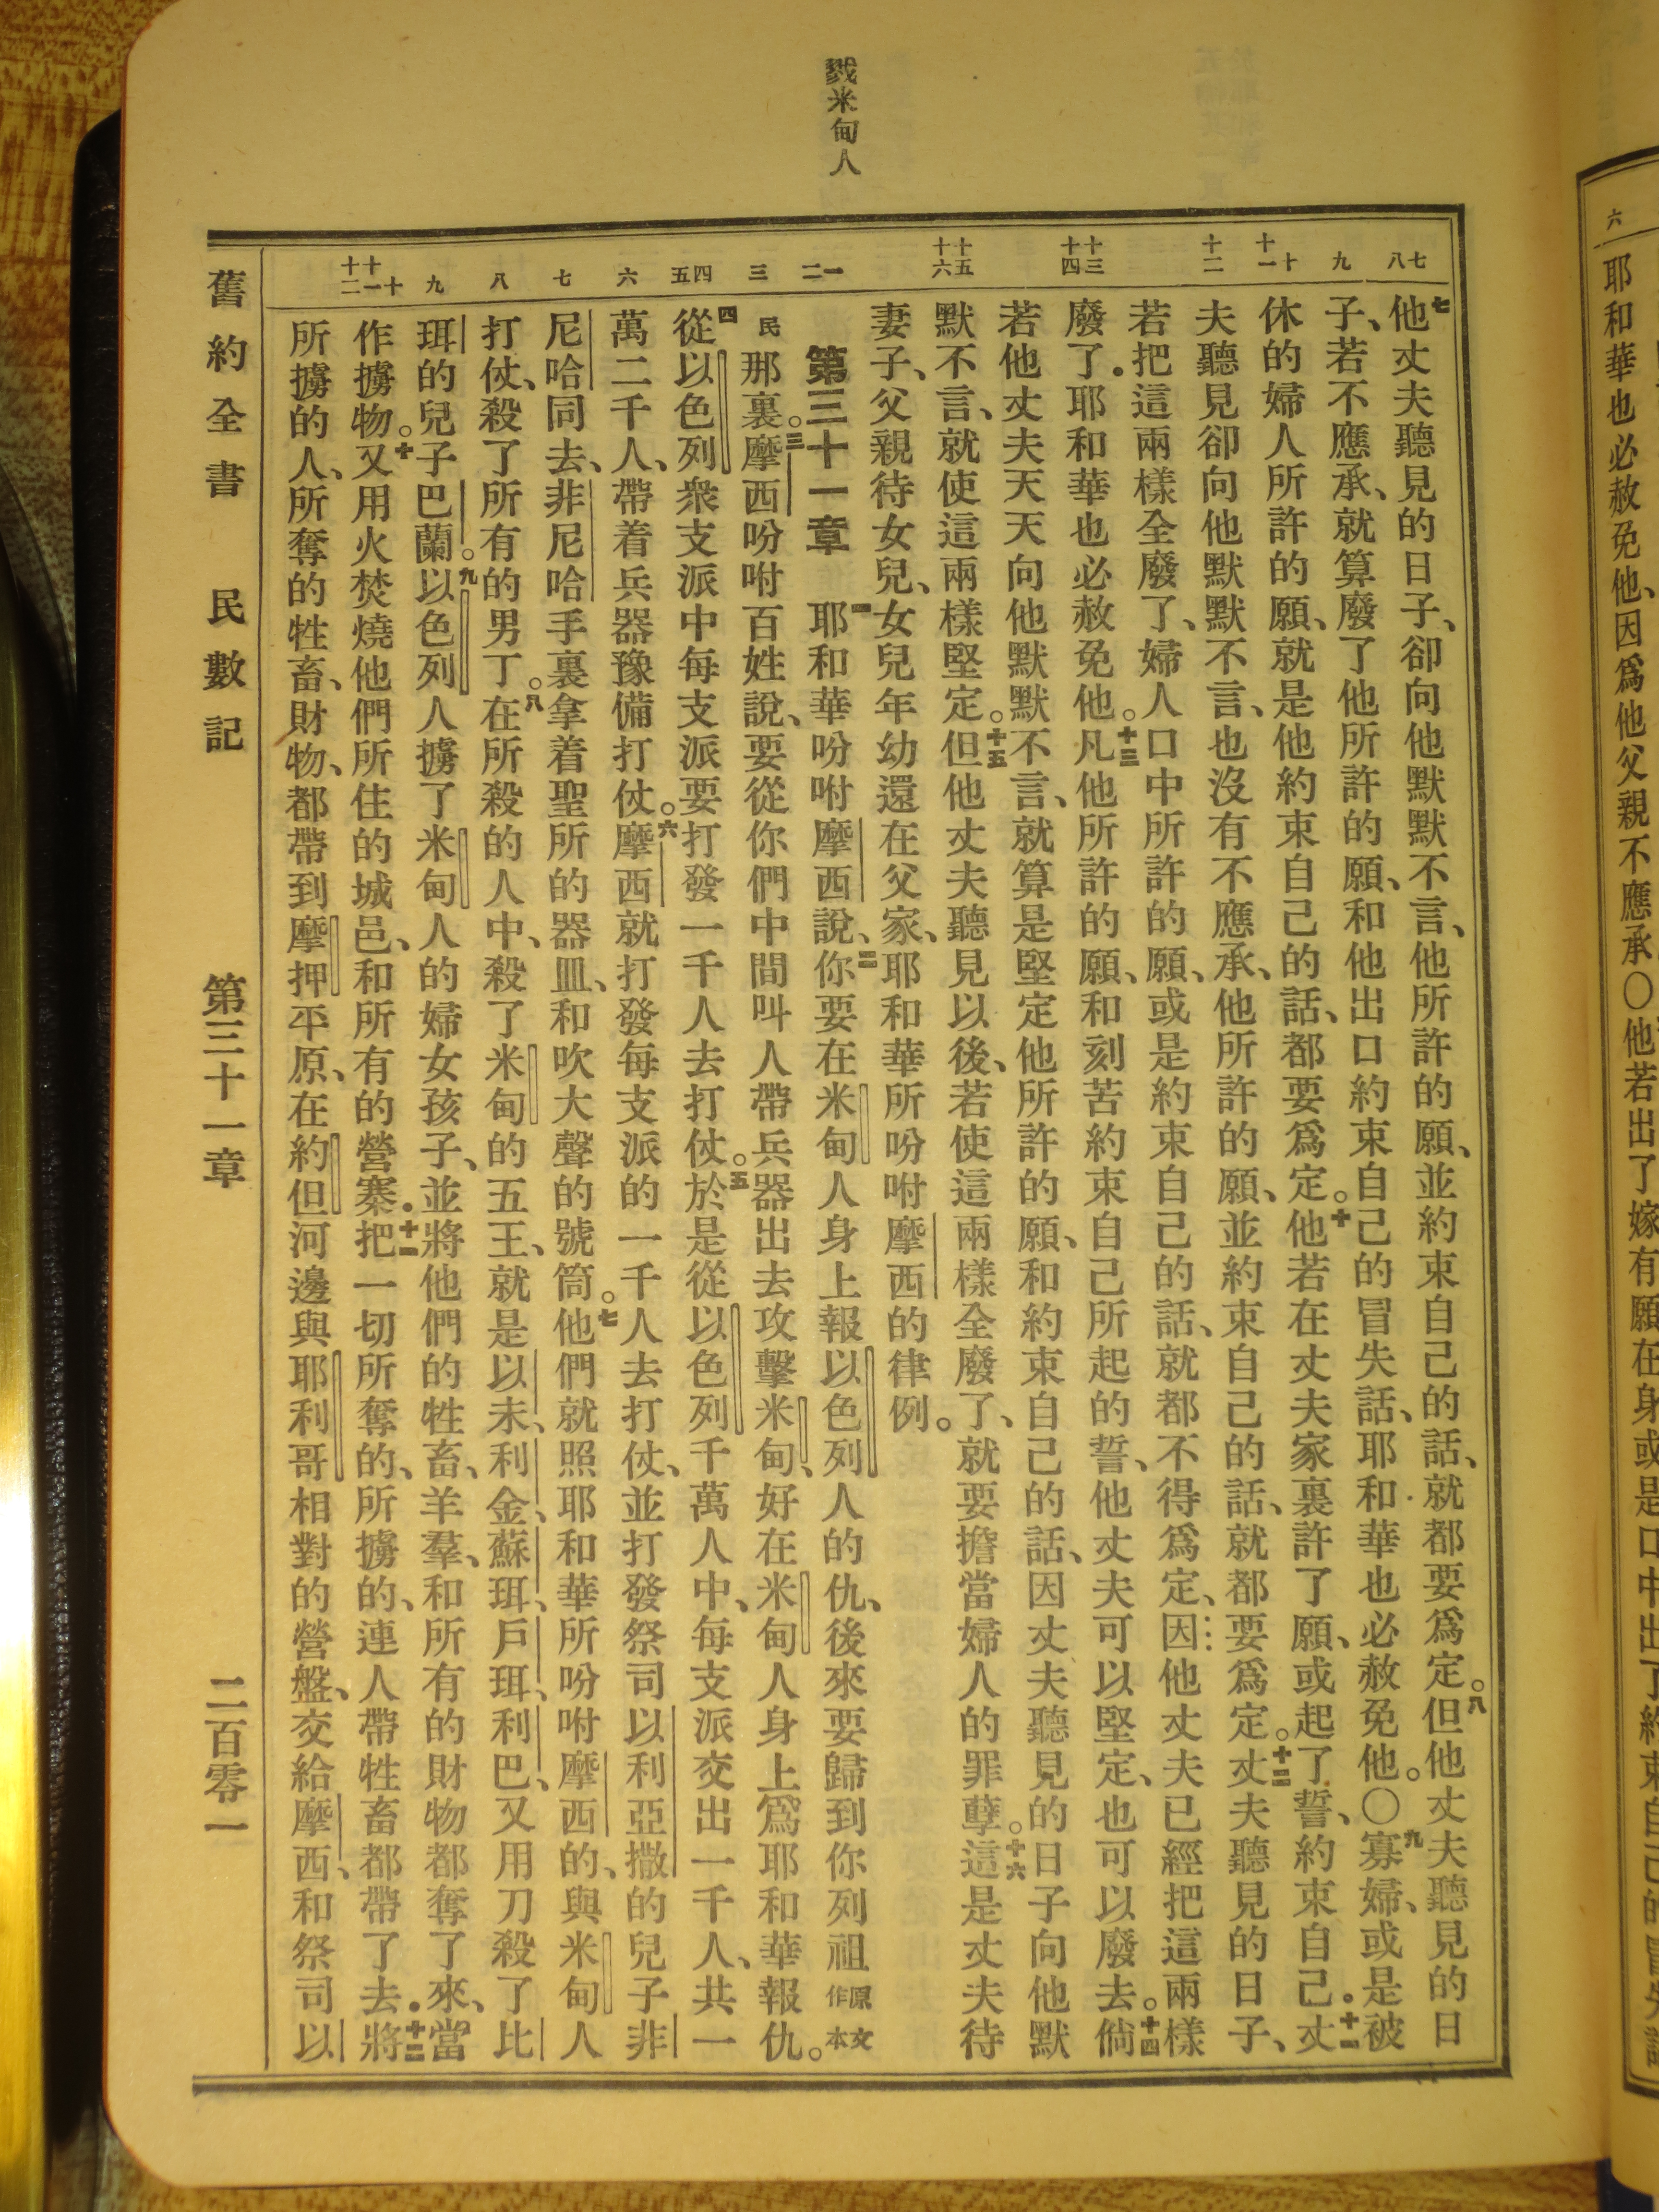 六
耶和華也必赦免他、因爲他父親不應承○他若出了嫁有願在身或是口中出了約束自己的冒失話
戮米甸人
七八
九
十十一
十二
十三十四
十五十六
一二
三
四五
六
七
八
九
十十一十二
七他丈夫聽見的日子、卻向他默默不言、他所許的願、並約束自己的話、就都要爲定。八但他丈夫聽見的日
子、若不應承、就算廢了他所許的願、和他出口約束自己的冒失話、耶和華也必赦免他。○九寡婦、或是被
休的婦人所許的願、就是他約束自己的話、都要爲定。十他若在丈夫家裏許了願、或起了誓、約束自己．十一丈
夫聽見卻向他默默不言、也沒有不應承、他所許的願、並約束自己的話、就都要爲定。十二丈夫聽見的日子、
若把這兩樣全廢了、婦人口中所許的願、或是約束自己的話、就都不得爲定、因他丈夫已經把這兩樣
廢了．耶和華也必赦免他。十三凡他所許的願、和刻苦約束自己所起的誓、他丈夫可以堅定、也可以廢去。十四倘
若他丈夫天天向他默默不言、就算是堅定他所許的願、和約束自己的話、因丈夫聽見的日子向他默
默不言、就使這兩樣堅定。十五但他丈夫聽見以後、若使這兩樣全廢了、就要擔當婦人的罪孽。十六這是丈夫待
妻子、父親待女兒、女兒年幼還在父家、耶和華所吩咐摩西的律例。
第三十一章 一耶和華吩咐摩西說、二你要在米甸人身上報以色列人的仇、後來要歸到你列祖原文作本
民那裏。三摩西吩咐百姓說、要從你們中間叫人帶兵器出去攻擊米甸、好在米甸人身上爲耶和華報仇。
四從以色列衆支派中每支派要打發一千人去打仗。五於是從以色列千萬人中、每支派交出一千人、共一
萬二千人、帶着兵器豫備打仗。六摩西就打發每支派的一千人去打仗、並打發祭司以利亞撒的兒子非
尼哈同去、非尼哈手裏拿着聖所的器皿、和吹大聲的號筒。七他們就照耶和華所吩咐摩西的、與米甸人
打仗、殺了所有的男丁。八在所殺的人中、殺了米甸的五王、就是以未、利金、蘇珥、戶珥、利巴、又用刀殺了比
珥的兒子巴蘭。九以色列人擄了米甸人的婦女孩子、並將他們的牲畜、羊羣、和所有的財物都奪了來、當
作擄物。十又用火焚燒他們所住的城邑、和所有的營寨．十一把一切所奪的、所擄的、連人帶牲畜都帶了去．十二將
所擄的人、所奪的牲畜、財物、都帶到摩押平原、在約但河邊與耶利哥相對的營盤、交給摩西、和祭司以
舊約全書 民數記 第三十一章 二百零一